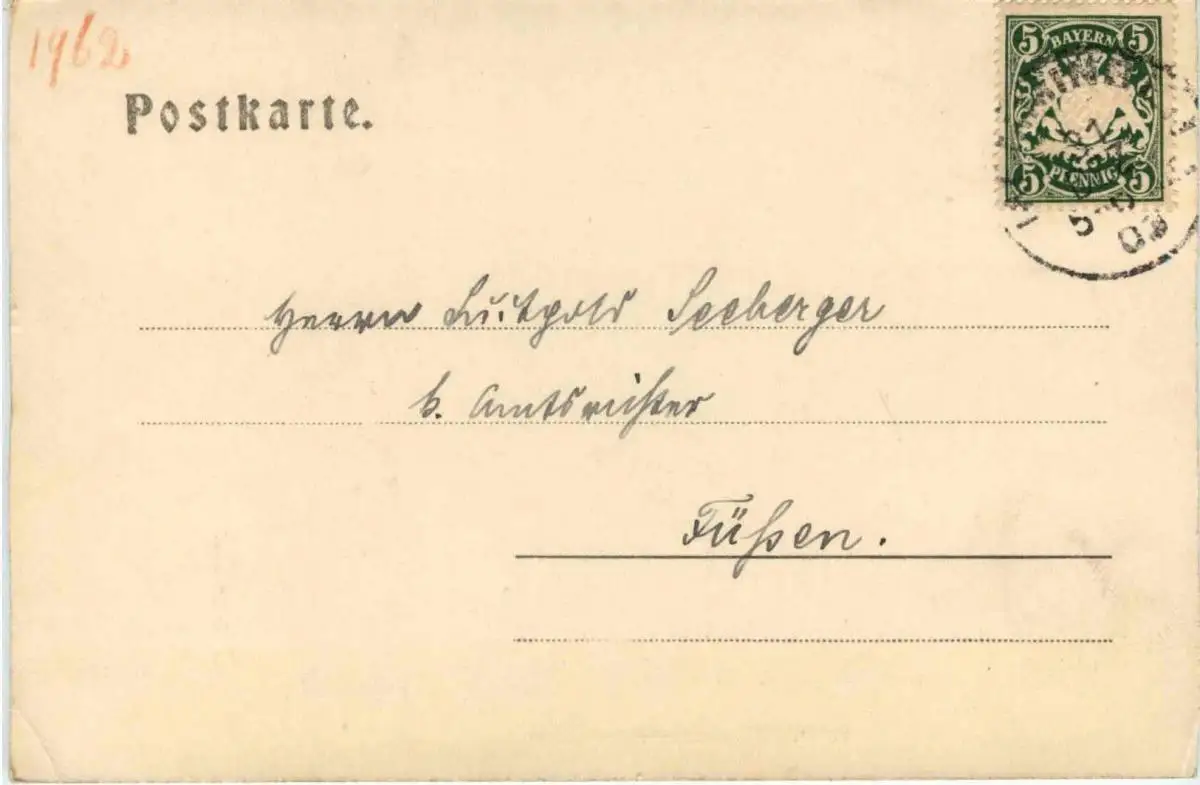 1962
Postkarte.
5 BAYERN 5
5 PFENNIG 5
Herrn Luitpold Seeberger
k. Amtsrichter
Füßen.